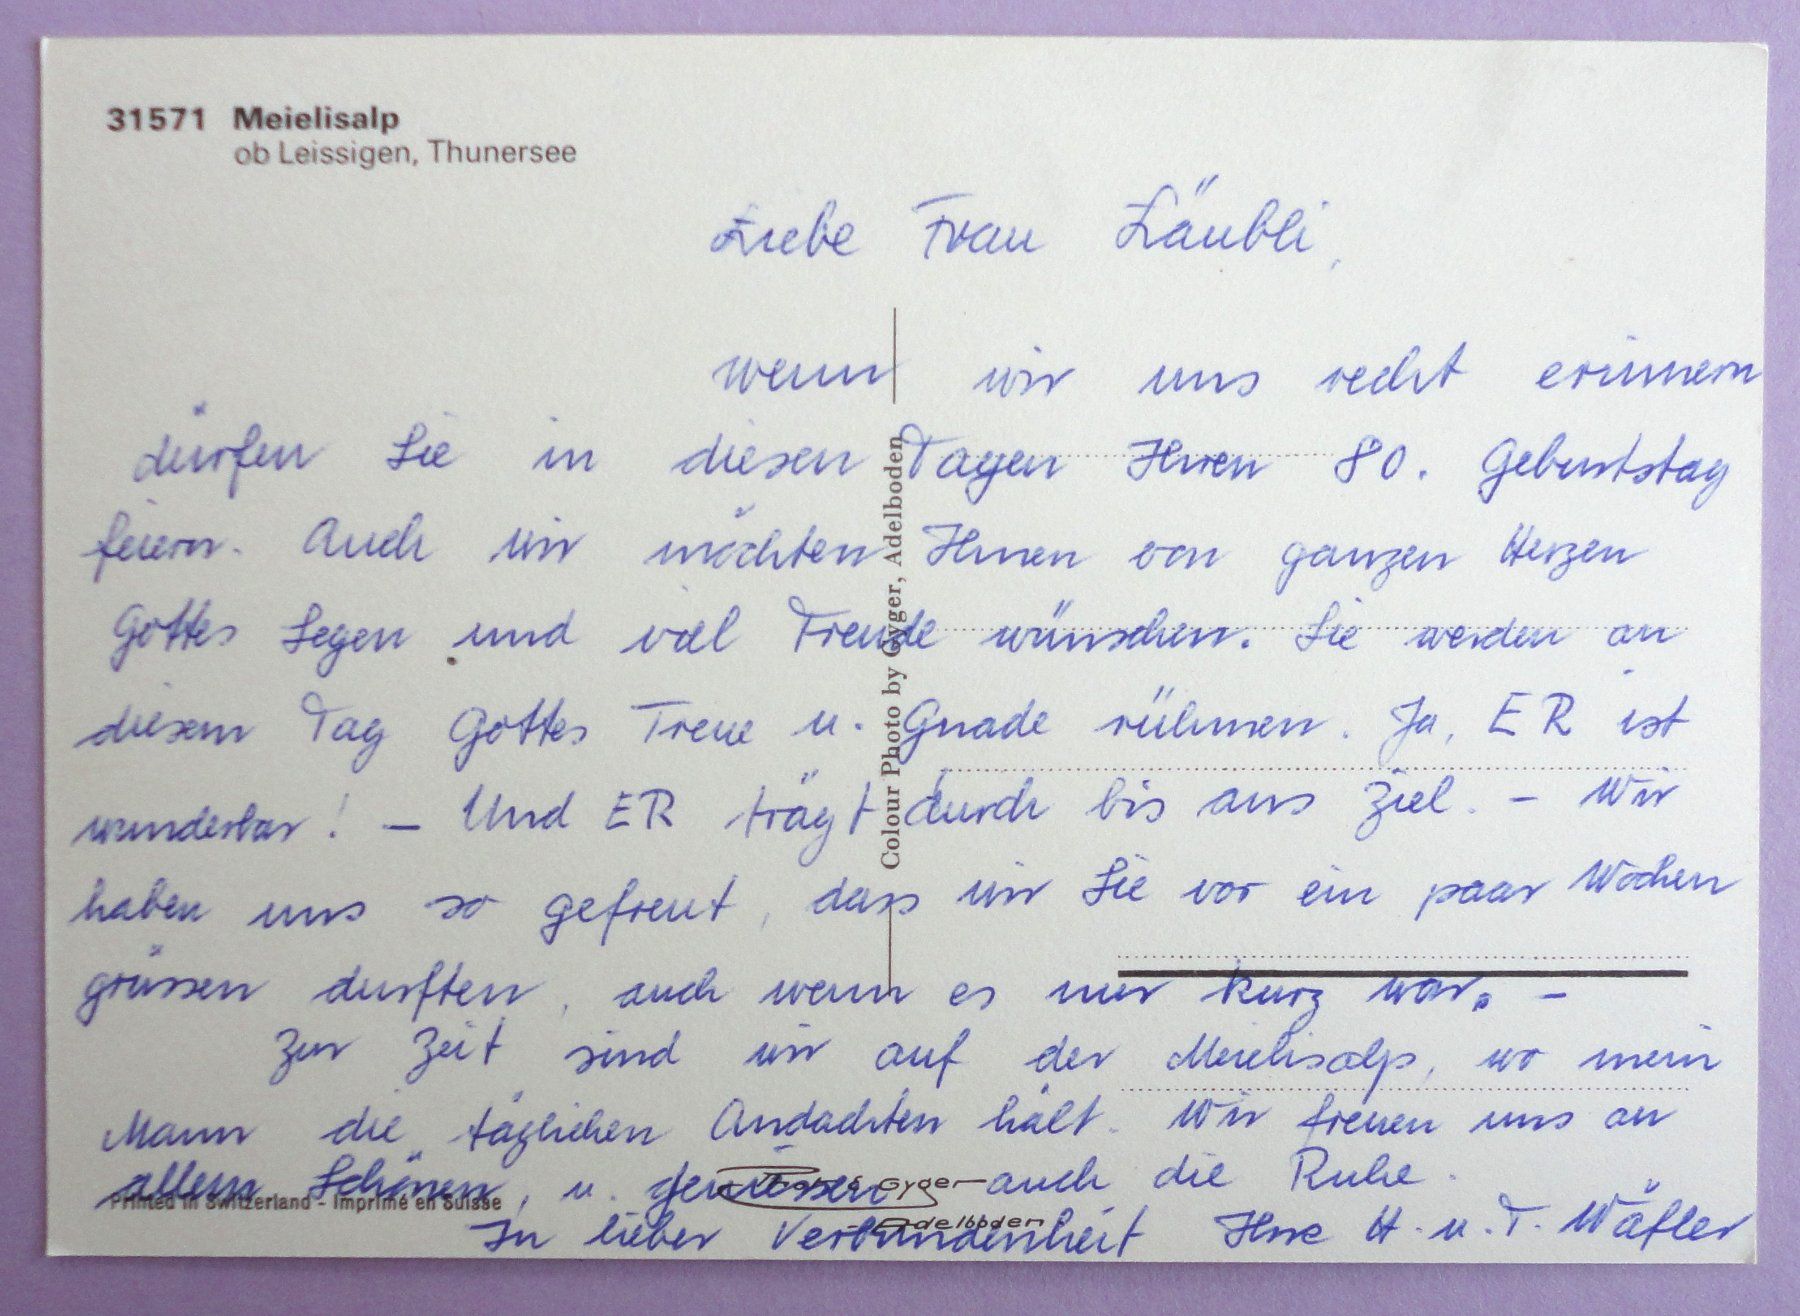 31571 Meielisalp
ob Leissigen, Thunersee
Liebe Frau Läubli,
wenn wir uns recht erinnern
dürfen Sie in diesen Tagen Ihren 80. Geburtstag
feiern. Auch wir möchten Ihnen von ganzen Herzen
Gottes Segen und viel Freude wünschen. Sie werden an
diesem Tag Gottes Treue u. Gnade rühmen. Ja, ER ist
wunderbar! – Und ER trägt durch bis ans Ziel. – Wir
haben uns so gefreut, dass wir Sie vor ein paar Wochen
grüssen durften, auch wenn es nur kurz war. –
Zur Zeit sind wir auf der Meielisalp, wo mein
Mann die täglichen Andachten hält. Wir freuen uns an
allem Schönen, u. geniessen auch die Ruhe.
In lieber Verbundenheit Ihre H. u. T. Wäfler
Colour Photo by Gyger, Adelboden
Printed in Switzerland - Imprimé en Suisse
Gyger
Adelboden